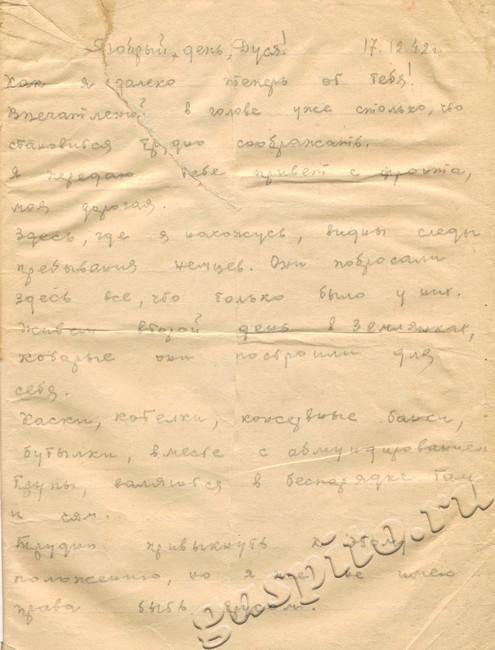 Добрый день, Дуся! 17.12.42г.
Как я далеко теперь от тебя!
Впечатлений в голове уже столько, что
становится трудно соображать.
Я передаю тебе привет с фронта,
моя дорогая.
Здесь, где я нахожусь, видны следы
пребывания немцев. Они побросали
здесь все, что только было у них.
Живем второй день в землянках,
которые они построили для
себя.
Каски, котелки, консервные банки,
бутылки, вместе с обмундированием
трупы, валяются в беспорядке там
и сям.
Трудно привыкнуть к этому
положению, но я не имею
права быть
guspito.ru